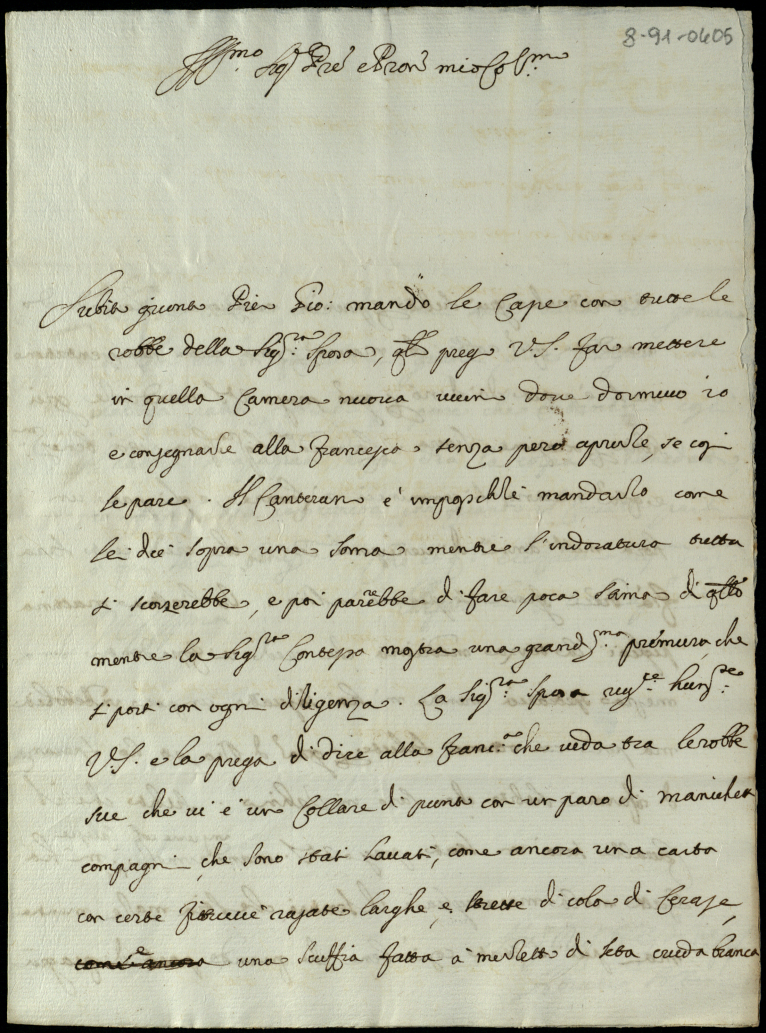 8-91-0405
Ill.mo Sig.r Pre' e Pron' mio Col.mo
Subito giunto Pier Gio: mandò le Cape con tutte le
robbe della Sig.ra Sposa, prego V.S. far mettere
in quella Camera nuova dove dormivo io
e consegnarle alla Francesca senza però aprirle, se così
le pare. Il Canterano è impossibile mandarlo come
lei dice sopra una soma mentre l'indoratura tutta
si scorzerebbe, e poi parrebbe di fare poca stima di
mentre la Sig.ra Contessa mostra una grandis.ma premura, che
si porti con ogni diligenza. La Sig.ra Sposa
V.S. e la prega di dire alla Franc.ca che veda tra le robbe
sue che vi è un Collare di punto con un paro di manichetti
compagni, che sono stati lavati, come ancora una carta
con certe fittuccie rasate larghe, e strette di color di Cerase,
come ancora una scuffia fatta a merletti di seta cruda bianca